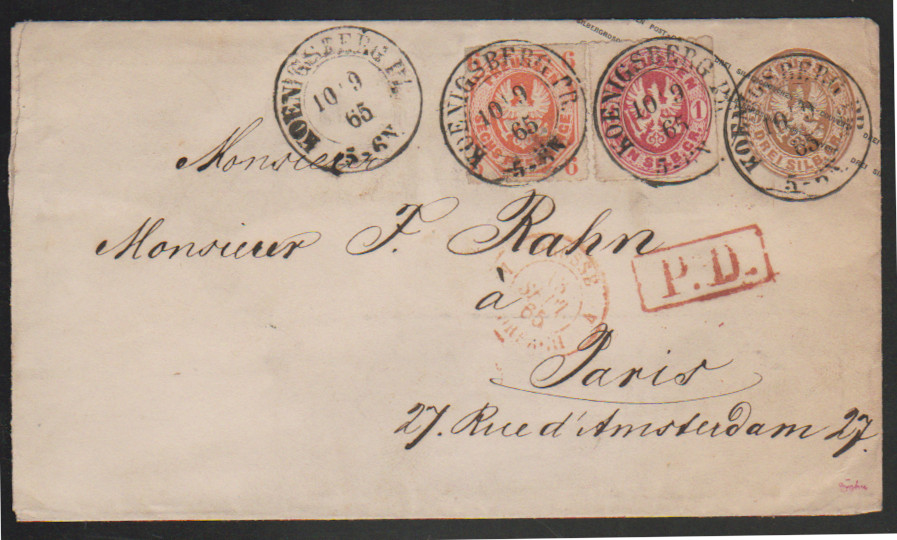 KOENIGSBERG PR.
10 9
65
5-6N
KOENIGSBERG PR.
10 9
65
5-6N
6
6
KOENIGSBERG PR.
10 9
65
5-6N
1
EIN SILB.GR.
KOENIGSBERG PR.
10 9
65
5-6N
DREI SILB.GR.
Monsieur
Monsieur F. Rahn
à
Paris
27. Rue d'Amsterdam 27.
P.D.
SEPT.
65